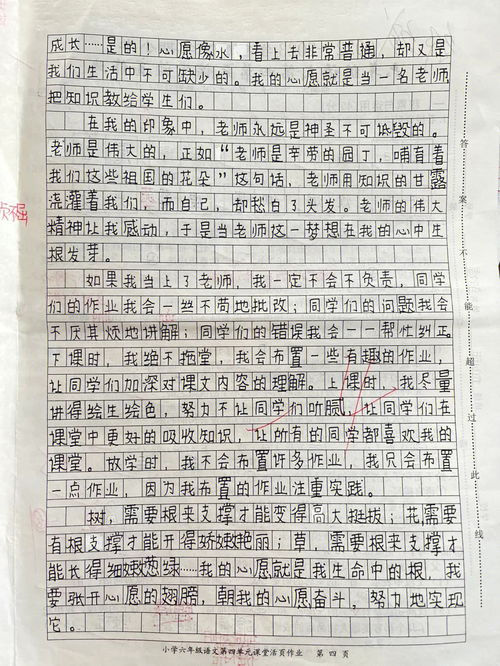 成长……是的！心愿像水，看上去非常普通，却又是
我们生活中不可缺少的。我的心愿就是当一名老师，
把知识教给学生们。
在我的印象中，老师永远是神圣不可诋毁的。
老师是伟大的，正如“老师是辛劳的园丁，哺育着
我们这些祖国的花朵”这句话，老师用知识的甘露
浇灌着我们，而自己，却愁白了头发。老师的伟大
精神让我感动，于是当老师这一梦想在我的心中生
根发芽。
如果我当上了老师，我一定不会不负责，同学
们的作业我会一丝不苟地批改；同学们的问题我会
不厌其烦地讲解；同学们的错误我会一一帮忙纠正。
下课时，我绝不拖堂，我会布置一些有趣的作业，
让同学们加深对课文内容的理解。上课时，我尽量
讲得绘生绘色，努力不让同学们听腻，让同学们在
课堂中更好的吸收知识，让所有的同学都喜欢我的
课堂。放学时，我不会布置许多作业，我只会布置
一点作业，因为我布置的作业注重实践。
树，需要根来支撑才能变得高大挺拔；花，需要
有根支撑才能开得娇嫩艳丽；草，需要根来支撑才
能长得细嫩葱绿……我的心愿就是我生命中的根，我
要张开心愿的翅膀，朝我的心愿奋斗，努力地实现
它。
小学六年级语文第四单元课堂活页作业 第 四 页
答案不能超过此线